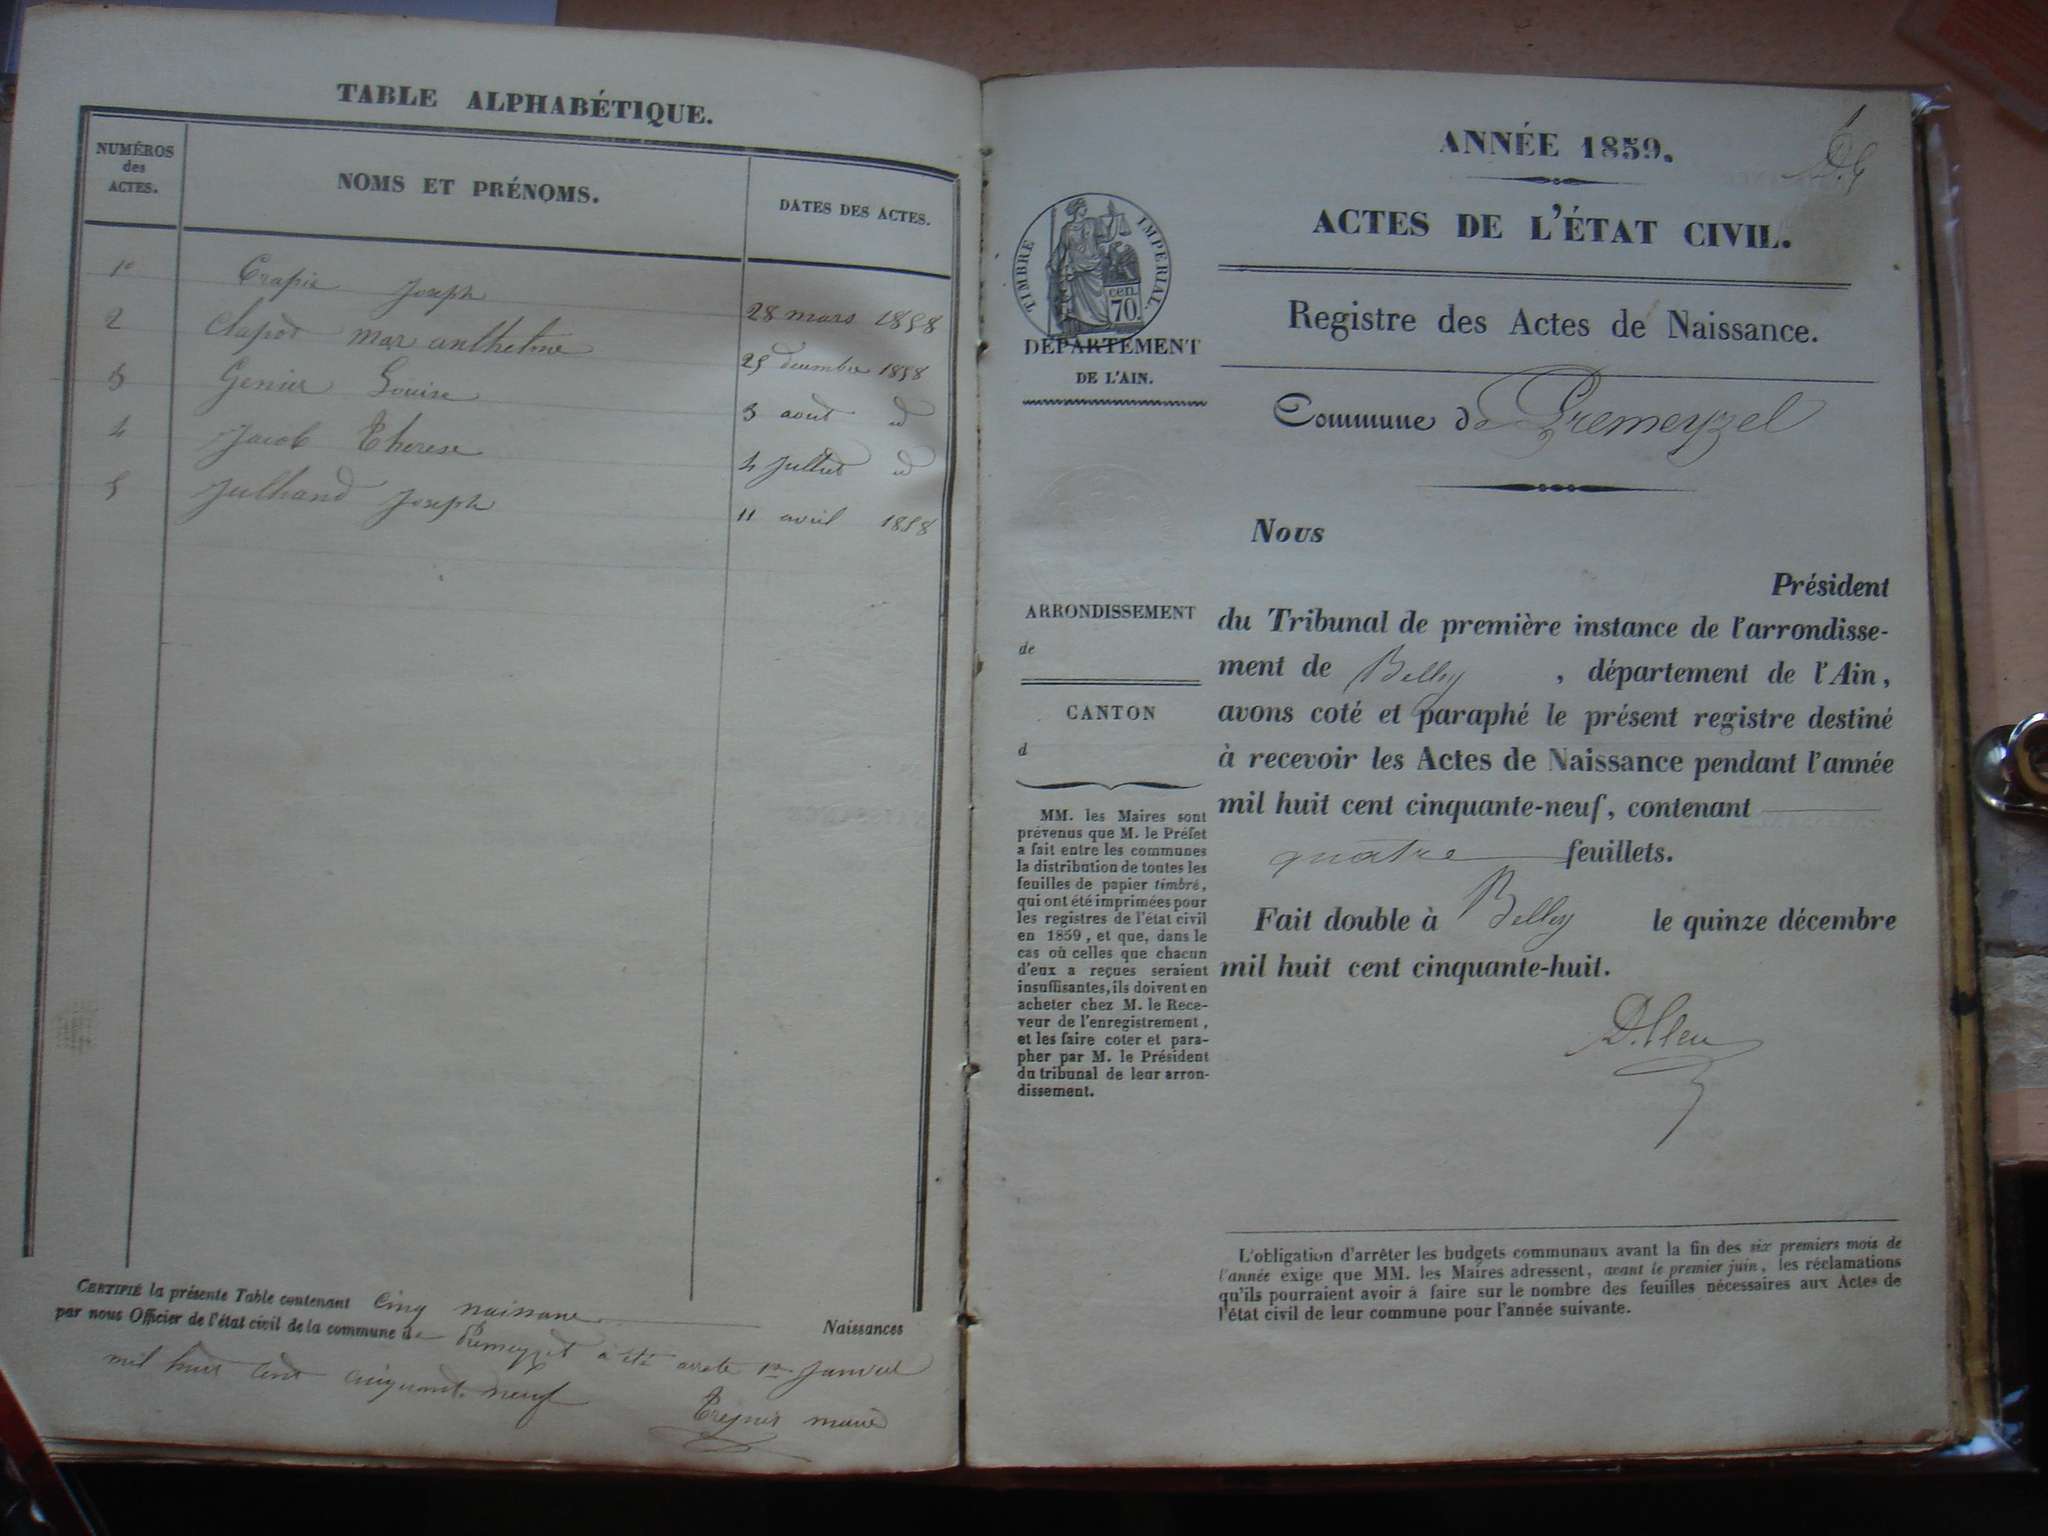 TABLE ALPHABÉTIQUE.
NUMÉROS
des
ACTES.
NOMS ET PRÉNOMS.
DATES DES ACTES.
1º Crapie Joseph 28 mars 1858
2 Chapot mar anthelme 25 decembre 1858
3 Genier Louise 3 aout id
4 Jacob Therese 4 Julliet id
5 Julhand Joseph 11 avril 1858
CERTIFIÉ la présente Table contenant Cinq naissance Naissances
par nous Officier de l'état civil de la commune de Premeyzel a été arrete 1er Janvier
mil huit cent cinquant neuf
maire
ANNÉE 1859.
ACTES DE L'ÉTAT CIVIL.
TIMBRE IMPÉRIAL
cen.
70.
DÉPARTEMENT
DE L'AIN.
Registre des Actes de Naissance.
Commune de Premeyzel
Nous
Président
du Tribunal de première instance de l'arrondisse-
ment de Belley, département de l'Ain,
avons coté et paraphé le présent registre destiné
à recevoir les Actes de Naissance pendant l'année
mil huit cent cinquante-neuf, contenant
quatre feuillets.
Fait double à Belley le quinze décembre
mil huit cent cinquante-huit.
ARRONDISSEMENT
de
CANTON
d
MM. les Maires sont
prévenus que M. le Préfet
a fait entre les communes
la distribution de toutes les
feuilles de papier timbré,
qui ont été imprimées pour
les registres de l'état civil
en 1859, et que, dans le
cas où celles que chacun
d'eux a reçues seraient
insuffisantes, ils doivent en
acheter chez M. le Rece-
veur de l'enregistrement,
et les faire coter et para-
pher par M. le Président
du tribunal de leur arron-
dissement.
L'obligation d'arrêter les budgets communaux avant la fin des six premiers mois de
l'année exige que MM. les Maires adressent, avant le premier juin, les réclamations
qu'ils pourraient avoir à faire sur le nombre des feuilles nécessaires aux Actes de
l'état civil de leur commune pour l'année suivante.